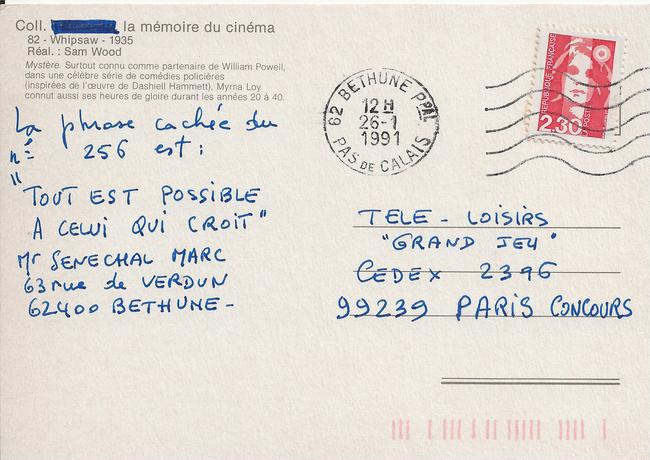 Coll. la mémoire du cinéma
82 - Whipsaw - 1935
Réal. : Sam Wood
Mystère. Surtout connu comme partenaire de William Powell,
dans une célèbre série de comédies policières
(inspirées de l'œuvre de Dashiell Hammett), Myrna Loy
connut aussi ses heures de gloire durant les années 20 à 40.
La phrase cachée du
n° 256 est :
"TOUT EST POSSIBLE
A CELUI QUI CROIT"
Mr SENECHAL MARC
63 rue de VERDUN
62400 BETHUNE -
62 BETHUNE PPAL
12 H
26-1
1991
PAS DE CALAIS
REPUBLIQUE FRANÇAISE
LA POSTE
2,30
TELE - LOISIRS
"GRAND JEU"
CEDEX 2396
99239 PARIS CONCOURS